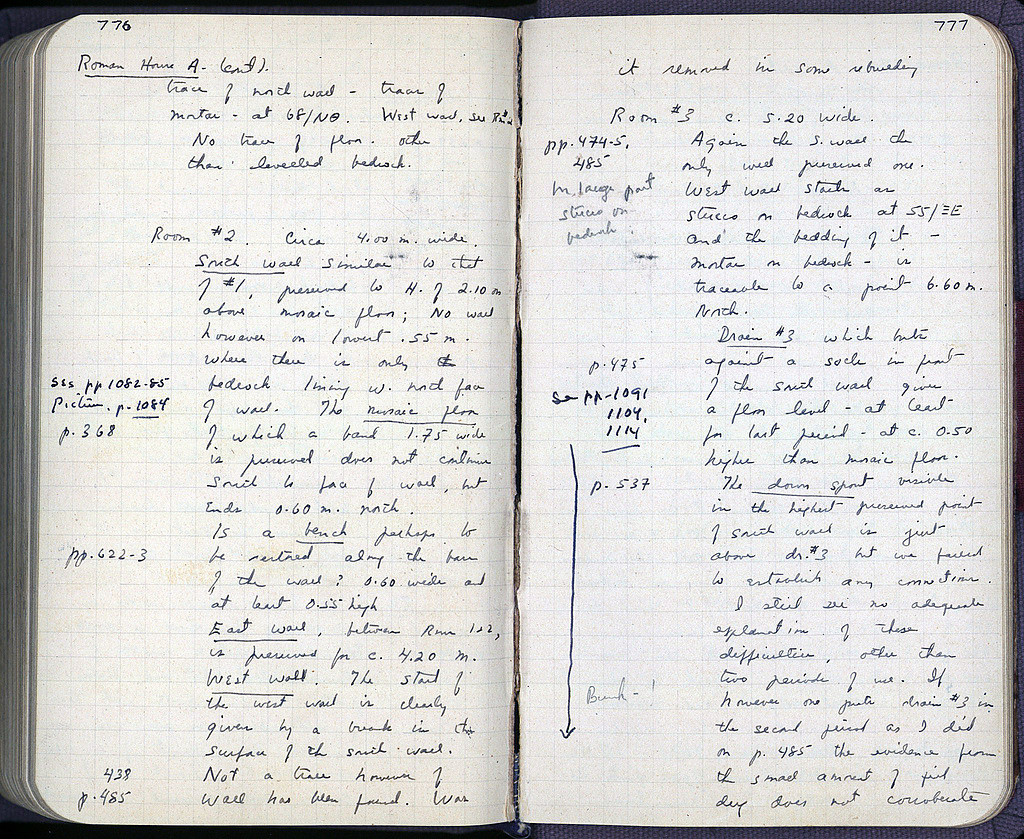 776
Roman House A - (cont).
trace of north wall - trace of
mortar - at 68/ΝΘ. West wall, see Rm #2
No trace of floor other
than levelled bedrock.
Room #2. Circa 4.00 m. wide.
South wall similar to that
of #1, preserved to H. of 2.10 m
above mosaic floor; No wall
however on lowest .55 m.
where there is only
bedrock lining w. north face
See pp 1082-85
Picture, p. 1084
of wall. The mosaic floor
p. 368
of which a band 1.75 wide
is preserved does not continue
South to face of wall, but
Ends 0.60 m. north.
Is a bench perhaps to
pp. 622-3
be restored along the base
of the wall? 0.60 wide and
at least 0.55 high
East wall, between Room 1+2,
is preserved for c. 4.20 m.
West wall. The start of
the west wall is clearly
given by a break in the
surface of the south wall.
438
Not a trace however of
p. 485
wall has been found. Was
777
it removed in some rebuilding
Room #3 c. 5.20 wide.
pp. 474-5,
485
Again the S. wall the
only well preserved one.
in large part
stucco on
bedrock.
West wall starts as
stucco on bedrock at 55/ΞΕ
and the bedding of it -
mortar on bedrock - is
traceable to a point 6.60 m.
North.
Drain #3 which butts
p. 475
against a socle in front
See pp-1091
1104,
1114
of the south wall gives
a floor level - at least
for last period - at c. 0.50
higher than mosaic floor.
p. 537
The down spout visible
in the highest preserved point
of south wall is just
above dr. #3 but we failed
to establish any connection.
I still see no adequate
explanation of these
difficulties, other than
two periods of use. If
Bunk-!
however one puts drain #3 in
the second period as I did
on p. 485 the evidence from
the small amount of fill
dug does not corroborate